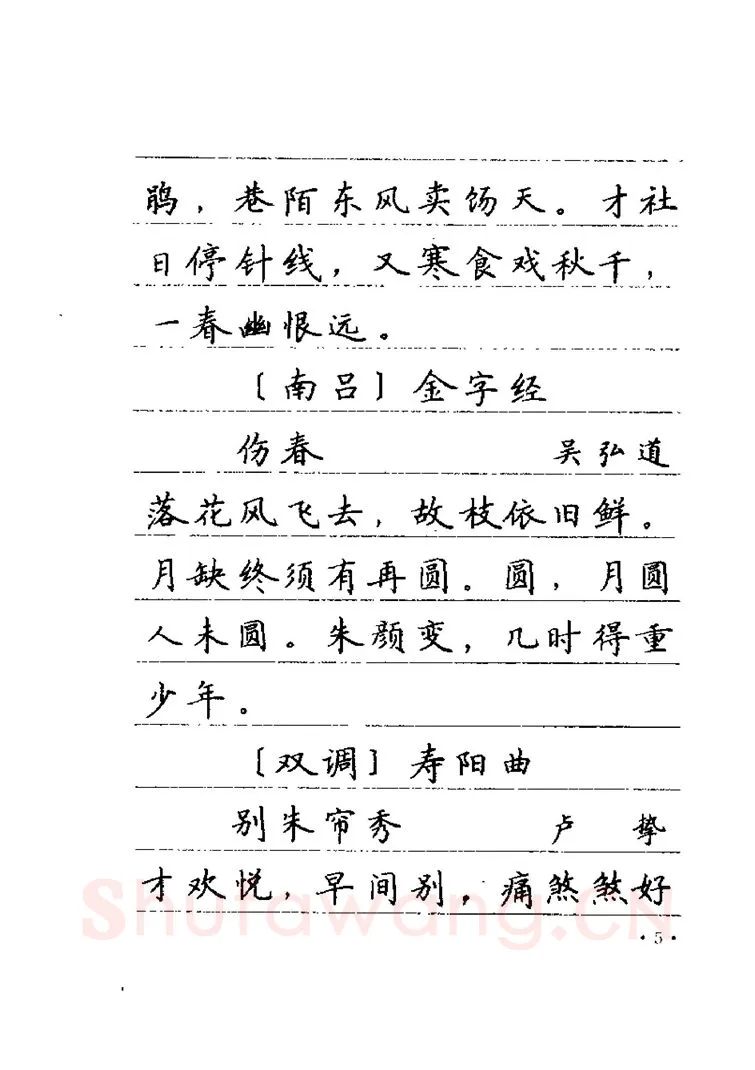 鹃，巷陌东风卖饧天。才社
日停针线，又寒食戏秋千，
一春幽恨远。
〔南吕〕金字经
伤春 吴弘道
落花风飞去，故枝依旧鲜。
月缺终须有再圆。圆，月圆
人未圆。朱颜变，几时得重
少年。
〔双调〕寿阳曲
别朱帘秀 卢挚
才欢悦，早间别，痛煞煞好
Shufawang.CN
·5·